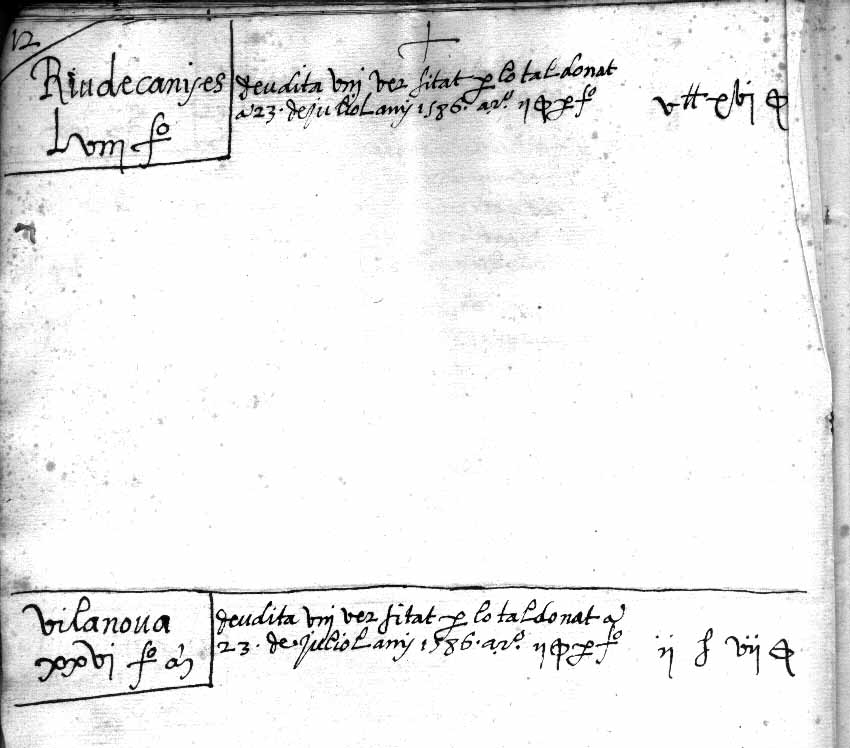 12
Riudecanyes
Lviij fo
deu dita vniversitat per lo tal donat
a 23 de juliol any 1586 a ro ij
Vilanoua
xxvi fo
deu dita vniversitat per lo tal donat a
23 de juliol any 1586 a ro ij
ij vij